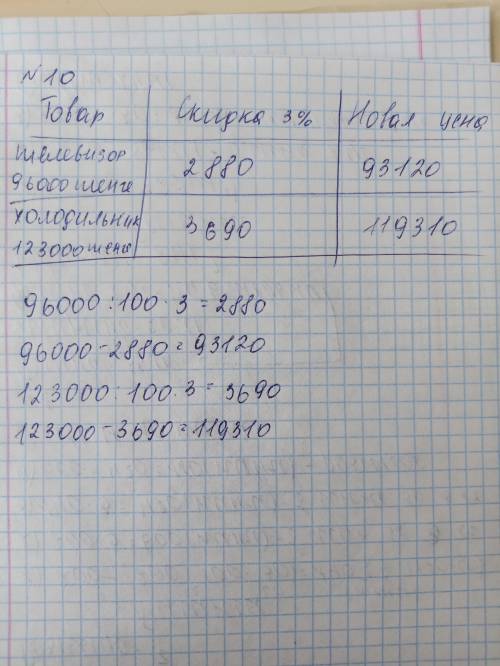 №10
Товар Скидка 3% Новая цена
телевизор 2880 93120
96000 тенге
холодильник 3690 119310
123000 тенге
96000 : 100 · 3 = 2880
96000 - 2880 = 93120
123000 : 100 · 3 = 3690
123000 - 3690 = 119310